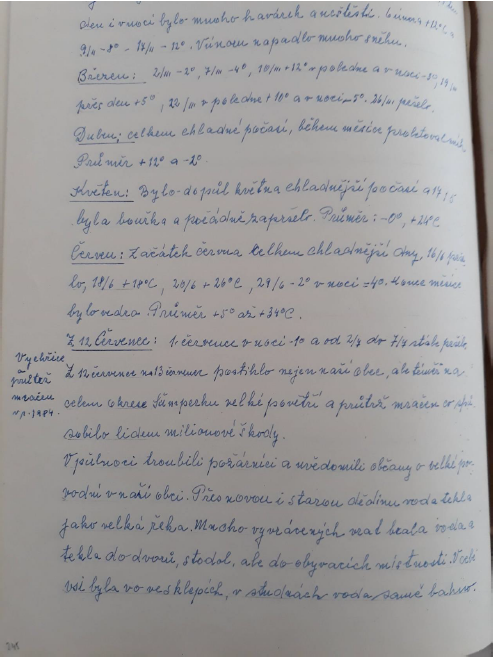 den i v noci bylo mnoho havárek a neštěstí. 6 února +12°C a
9/II -8° - 17/II - 12°. V únoru napadlo mnoho sněhu.
Březen: 2/III -2°, 7/III -4°, 10/III +12° v poledne a v noci -3°, 19/III
přes den +5°, 22/III v poledne +10° a v noci -5°. 26/III pršelo.
Duben: celkem chladné počasí, během měsíce
Průměr +12° a -2°
Květen: Bylo do půl května chladnější počasí a 17/5
byla bouřka a pořádně zapršelo. Průměr: -0°, +24°C
Červen: Začátek června celkem chladnější dny, 16/6 prše
lo, 18/6 +18°C, 20/6 +26°C, 29/6 -2° v noci = 4°. Konec měsíce
bylo vedro. Průměr +5° až +34°C.
Z 12 Července: 1. července v noci -1° a od 2/7 do 7/7 stále pršelo,
Vychřice
průtrž
mračen
v r. 1984.
Z 12 července na 13 červenec postihlo nejen naši obec, ale téměř na
celém okrese Šumperku velké povětří a průtrž mračen co způ
sobilo lidem milionové škody.
V půlnoci troubili požárníci a uvědomili občany o velké po-
vodni v naší obci. Přes novou i starou dědinu voda tekla
jako velká řeka. Mnoho vyvrácených vrat brala voda a
tekla do dvorů, stodol, ale do obývacích místností. V celé
vsi byla voda ve sklepích, v studnách voda samé bahno.